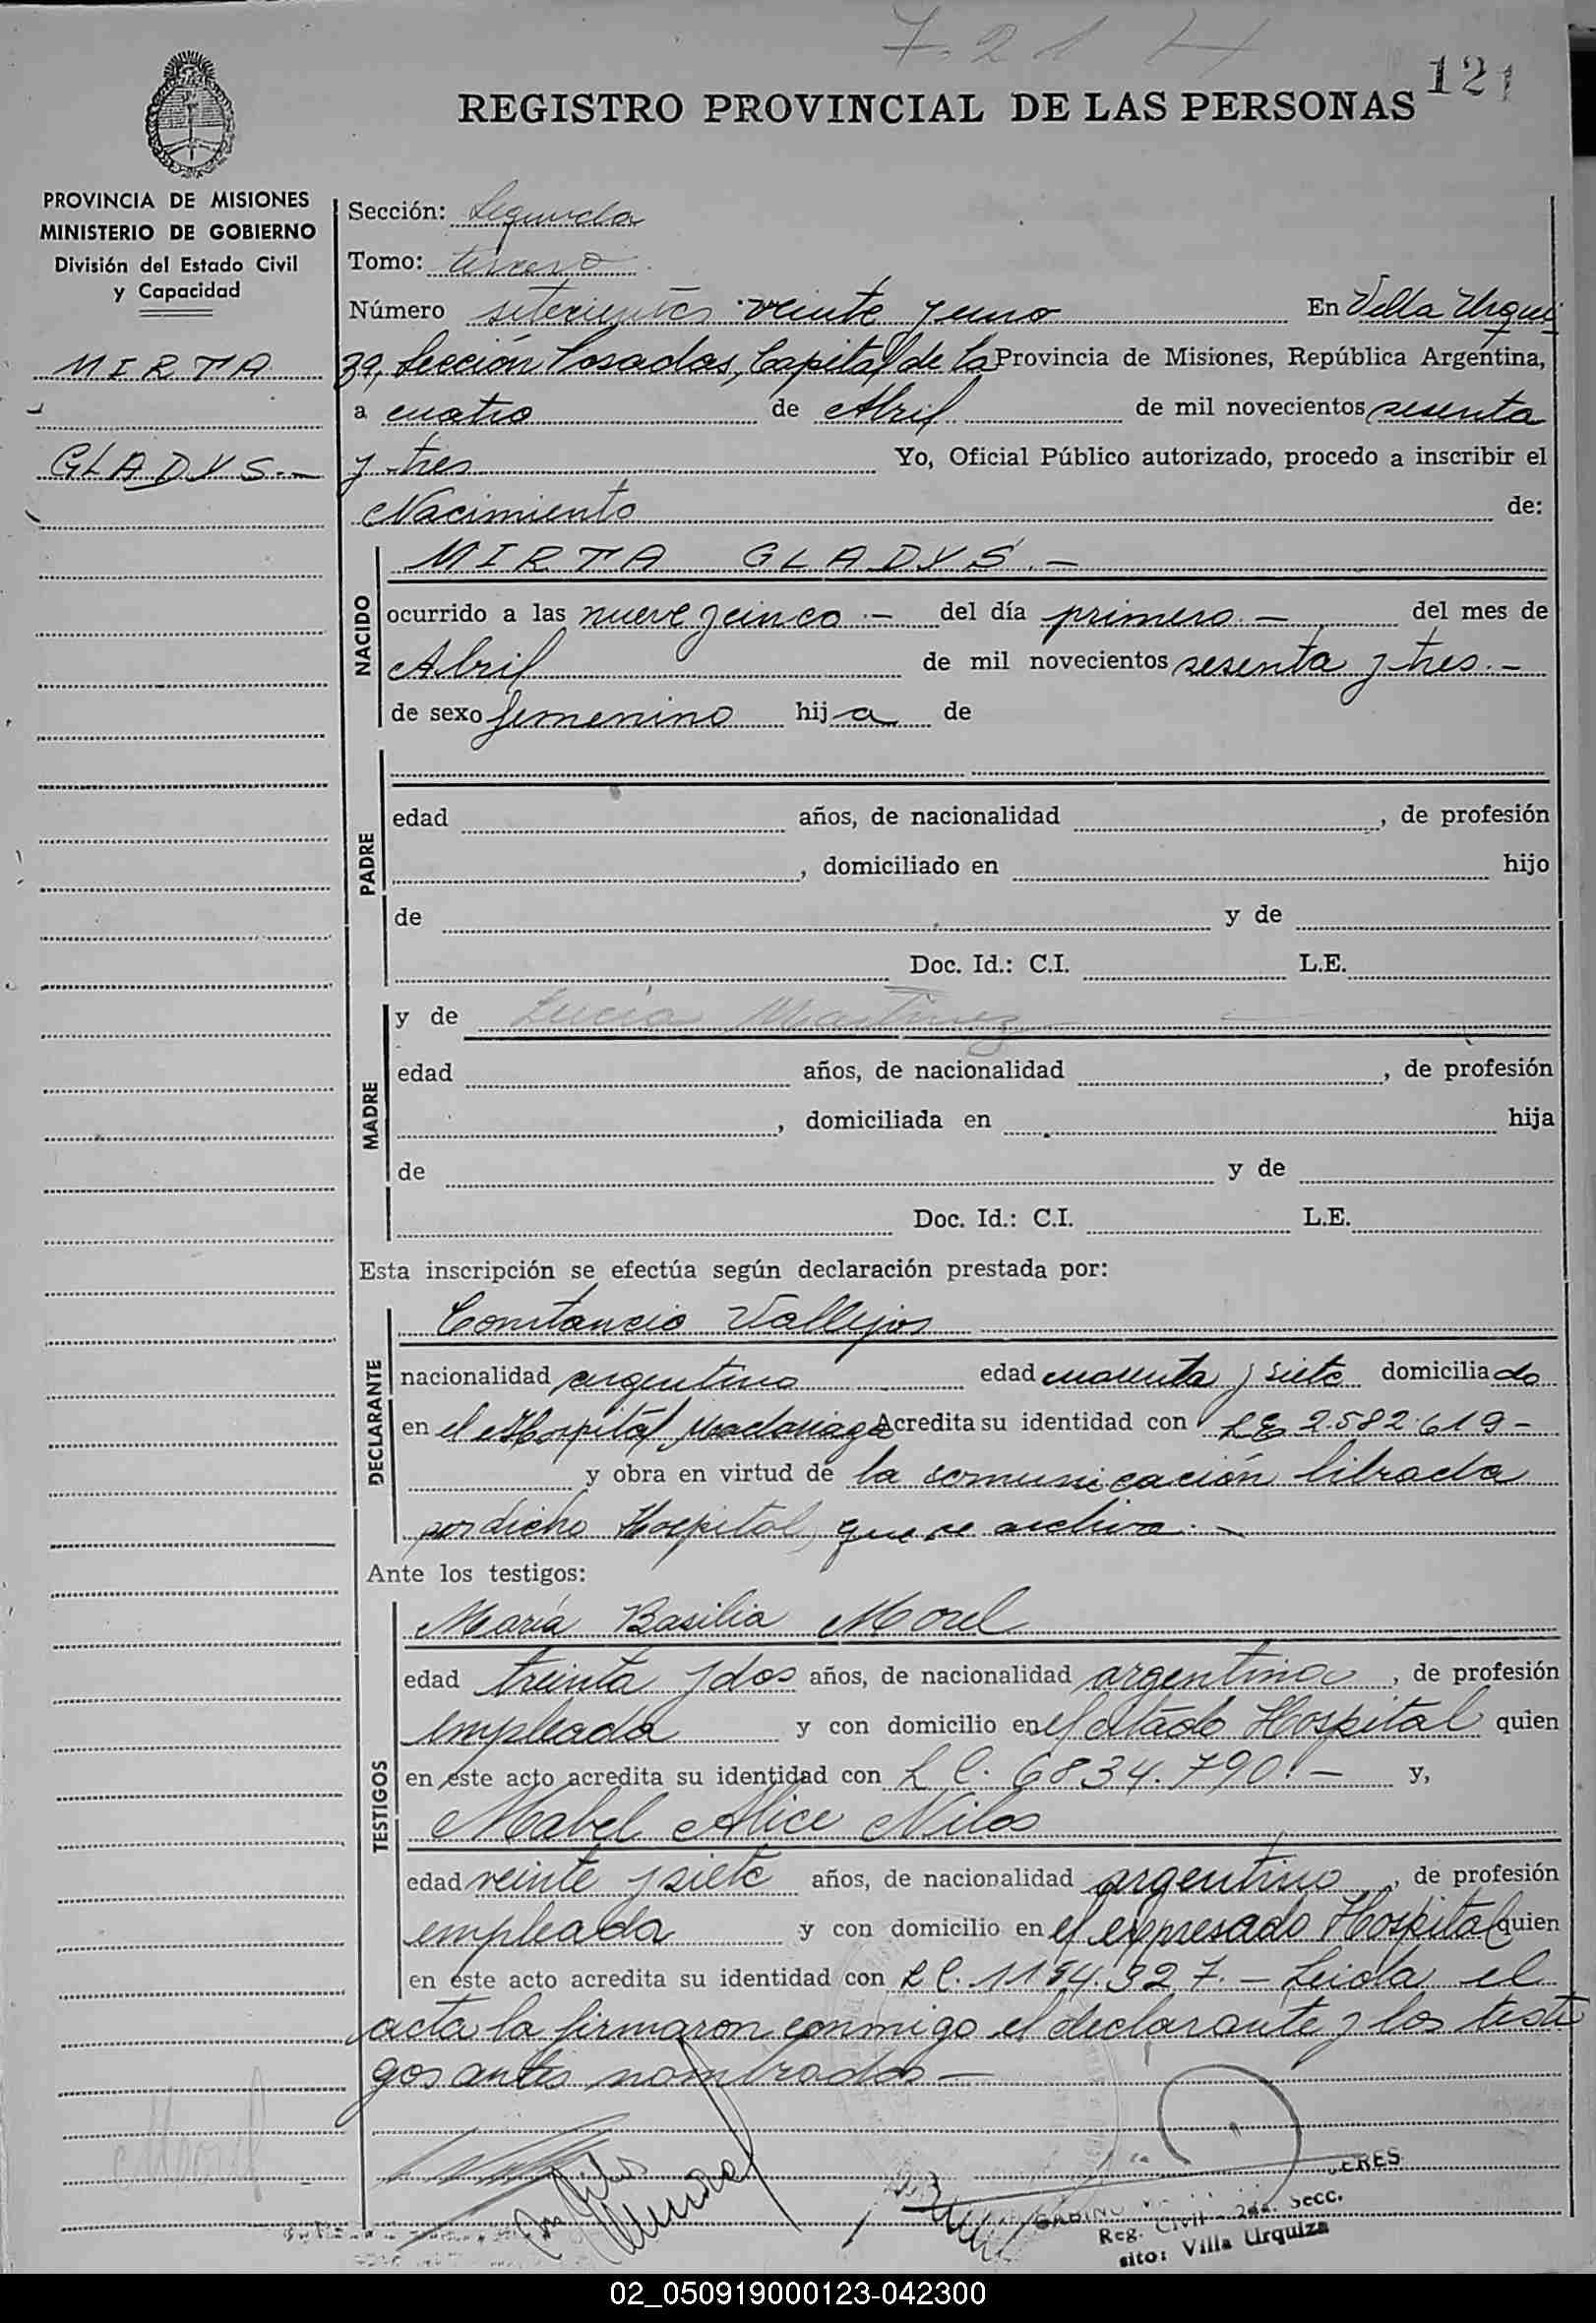 7.21
121
REGISTRO PROVINCIAL DE LAS PERSONAS
PROVINCIA DE MISIONES
MINISTERIO DE GOBIERNO
División del Estado Civil
y Capacidad
MIRTA
GLADYS.-
Sección: Segunda
Tomo: tercero
Número setecientos veinte y uno En Villa Urqui
za, Sección Posadas, Capital de la Provincia de Misiones, República Argentina,
a cuatro de Abril de mil novecientos sesenta
y tres Yo, Oficial Público autorizado, procedo a inscribir el
Nacimiento de:
NACIDO
MIRTA GLADYS.-
ocurrido a las nueve y cinco.- del día primero.- del mes de
Abril de mil novecientos sesenta y tres.-
de sexo femenino hija de
PADRE
edad años, de nacionalidad , de profesión
, domiciliado en hijo
de y de
Doc. Id.: C.I. L.E.
MADRE
y de Lucía Martinez
edad años, de nacionalidad , de profesión
, domiciliada en hija
de y de
Doc. Id.: C.I. L.E.
Esta inscripción se efectúa según declaración prestada por:
DECLARANTE
Constancio Vallejos
nacionalidad argentino edad cuarenta y siete domiciliado
en el Hospital Madariaga Acredita su identidad con LE 2.582.619-
y obra en virtud de la comunicación librada
por dicho Hospital, que se archiva.-
Ante los testigos:
TESTIGOS
María Basilia Morel
edad treinta y dos años, de nacionalidad argentina, de profesión
empleada y con domicilio en el citado Hospital quien
en este acto acredita su identidad con L C. 6834.790.- y,
Mabel Alice Nilos
edad veinte y siete años, de nacionalidad argentina, de profesión
empleada y con domicilio en el expresado Hospital quien
en este acto acredita su identidad con L C. 1194.327.- Leída el
acta la firmaron conmigo el declarante y los testi
gos antes nombrados-
Morel
GABINO
Reg. Civil - 2da. Secc.
sito: Villa Urquiza
02_050919000123-042300